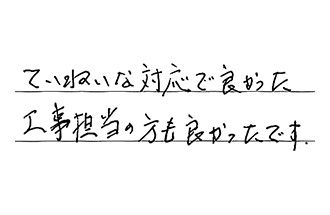 ていねいな対応で良かった
工事担当の方も良かったです.